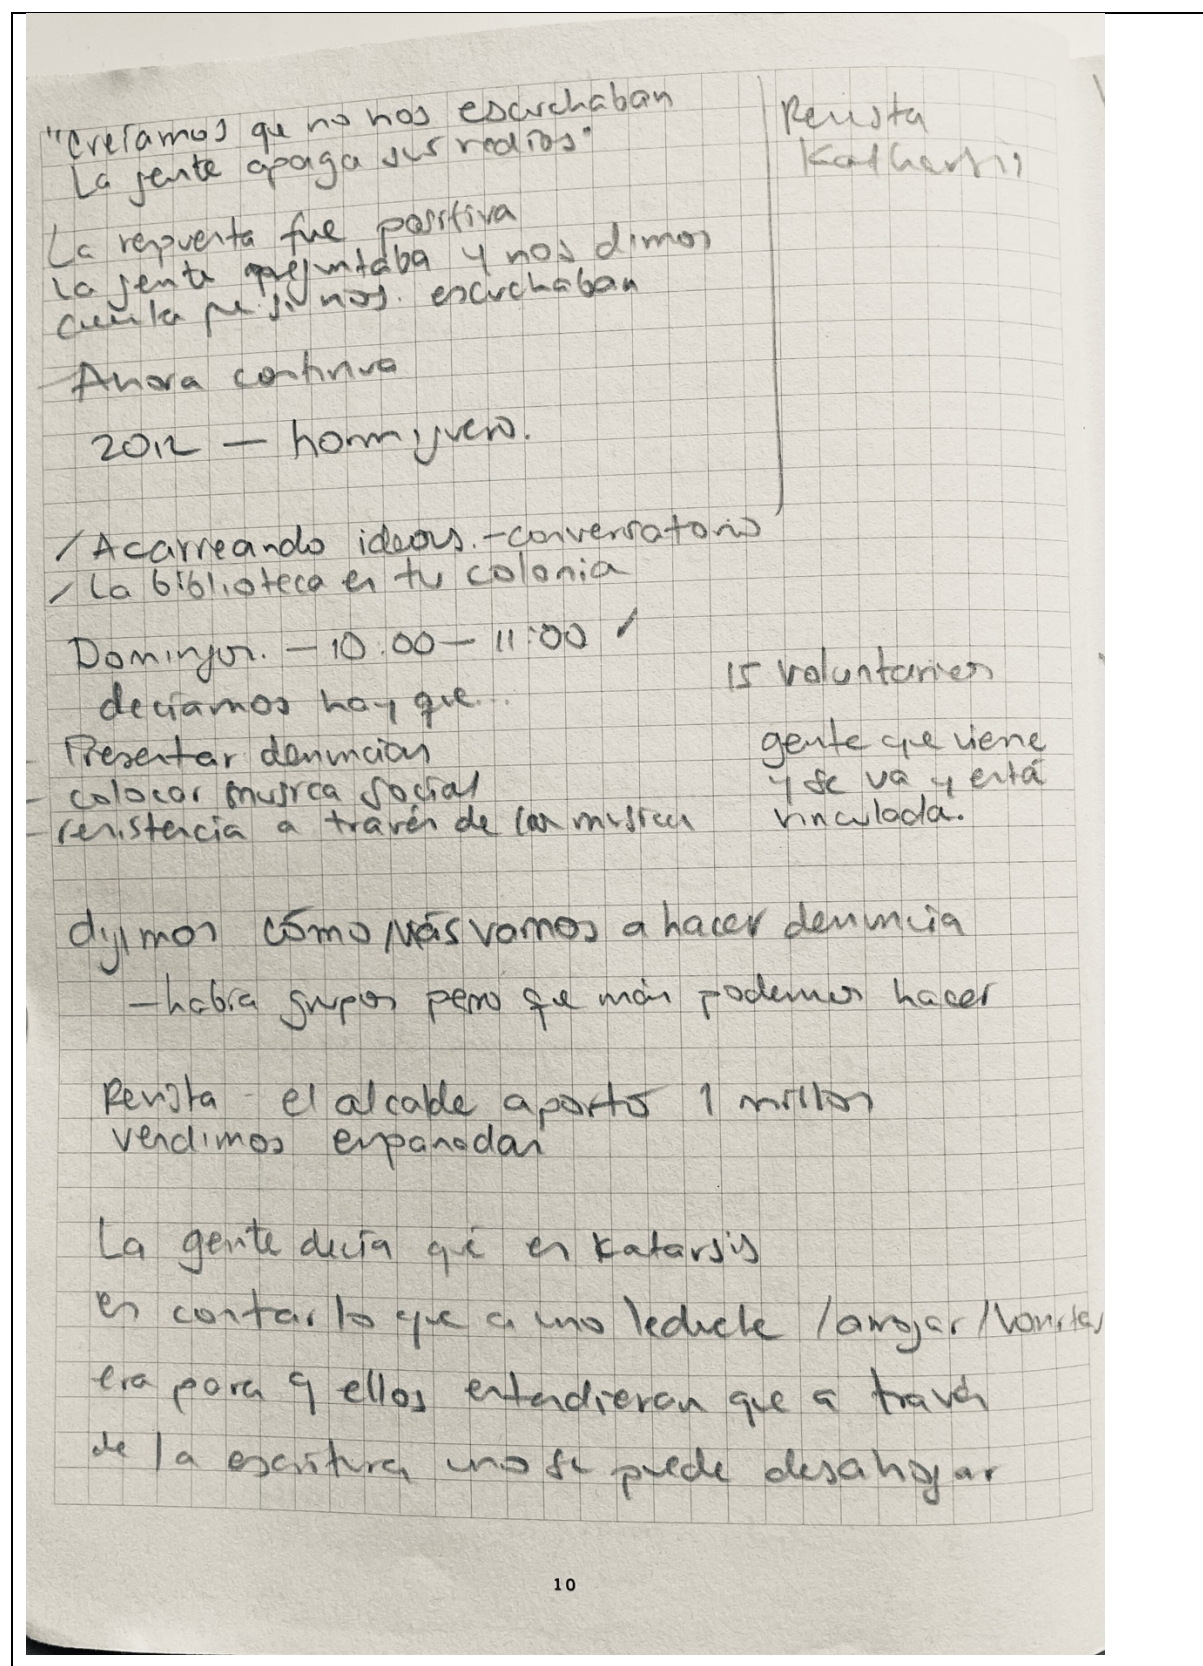 "Creíamos que no nos escuchaban
La gente apaga sus radios"
Revista
Katharsis
La respuesta fue positiva
La gente preguntaba y nos dimos
cuenta que si nos. escuchaban
- Ahora continua
2012 — hormiguero.
/ Acarreando ideas. - conversatorio
/ La biblioteca en tu colonia
Domingos. — 10:00 — 11:00 /
decíamos hay que...
- Presentar denuncias
- colocar musica social
- resistencia a través de la musica
15 voluntarios
gente que viene
y se va y está
vinculada.
dijimos cómo más vamos a hacer denuncia
- había grupos pero que más podemos hacer
Revista - el alcalde aporto 1 millon
vendimos empanadas
La gente decía qué es Katarsis
es contar lo que a uno le duele / arrojar / vomitar
era para q ellos entendieran que a través
de la escritura uno se puede desahogar
10